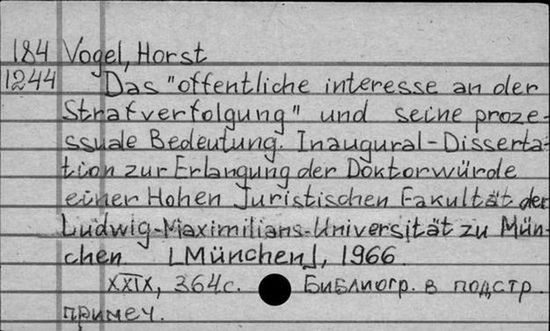 184 Vogel, Horst
1244 Das "offentliche interesse an der
Strafverfolgung" und seine proze-
ssuale Bedeutung. Inaugural-Disserta-
tion zur Erlangung der Doktorwürde
einer Hohen Juristischen Fakultät der
Ludwig-Maximilians-Universität zu Mün-
chen. [München], 1966.
XXIX, 364 с. Библиогр. в подстр.
примеч.